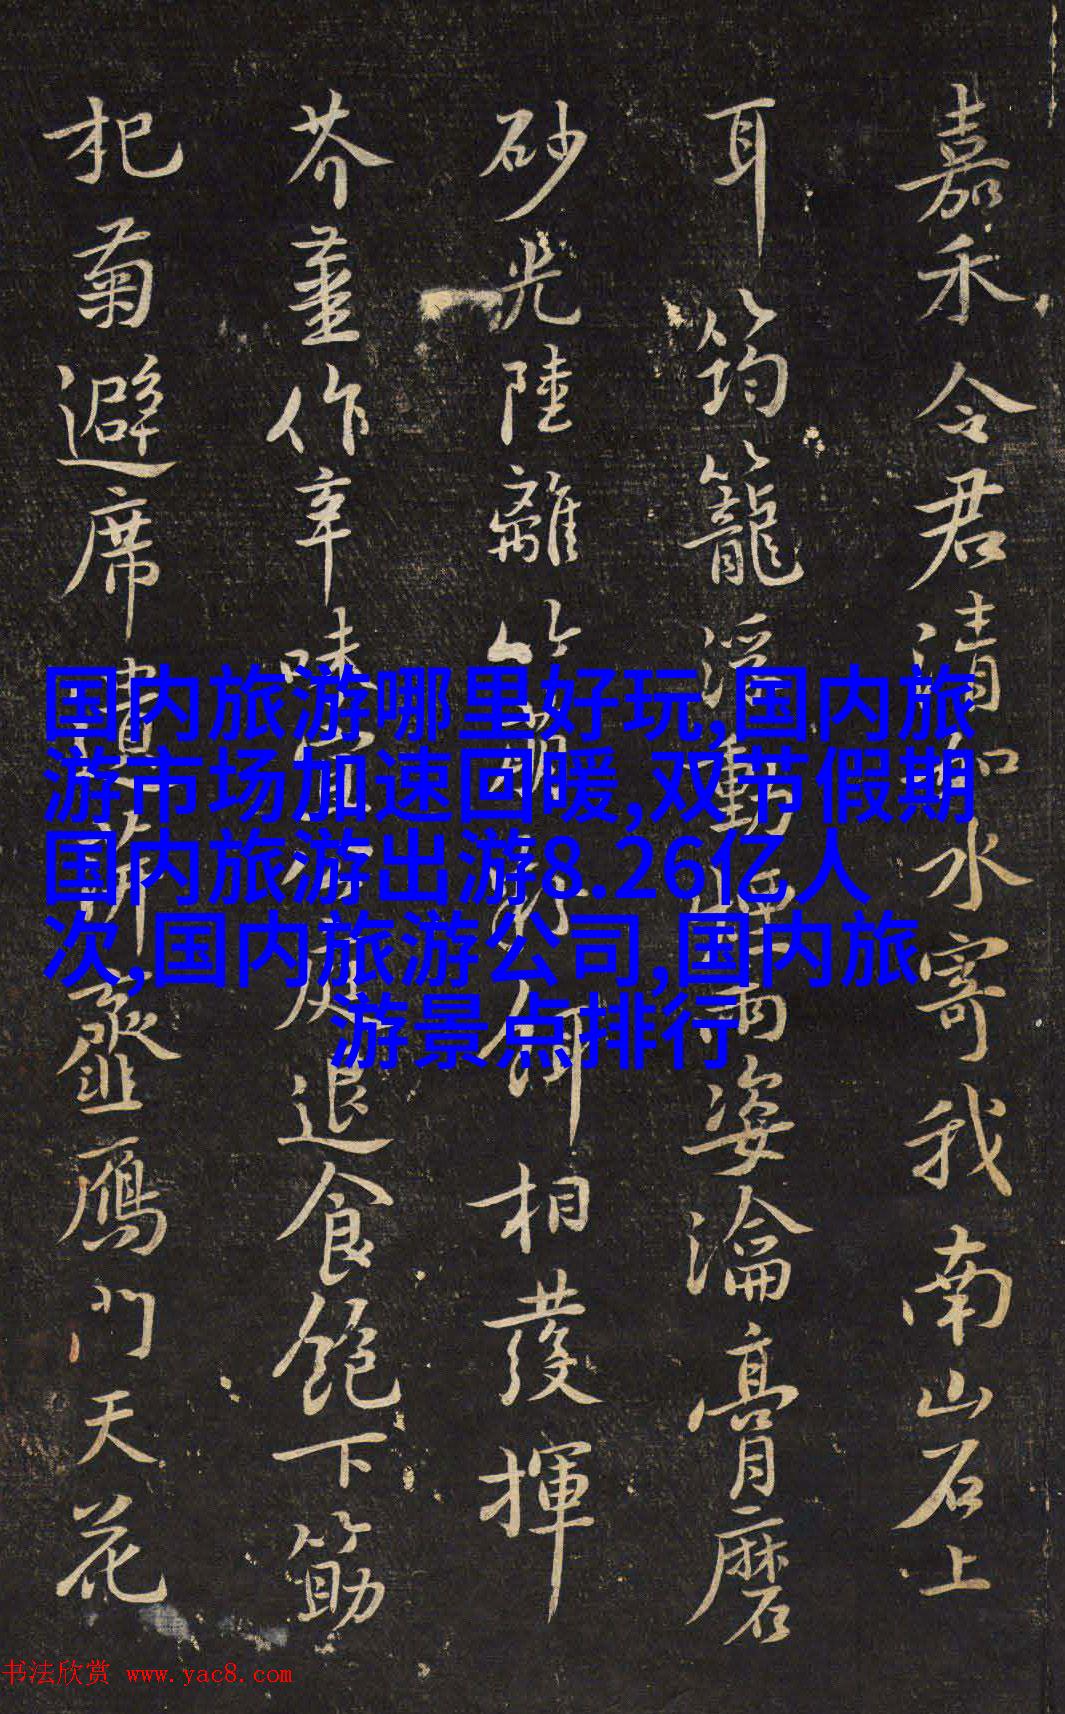 嘉禾令君清如水寄我南山石上
耳筠籠浮動烟雨姿瀹膏磨
砂光陸離箭萌飣餌相發揮
芥薑作辛味宜公庖退食飽下筯
杞菊避席遺萍虀雁門天花
国内旅游哪里好玩,国内旅
游市场加速回暖,双节假期
国内旅游出游8.26亿人
次,国内旅游公司,国内旅
游景点排行
书法欣赏 www.yac8.com